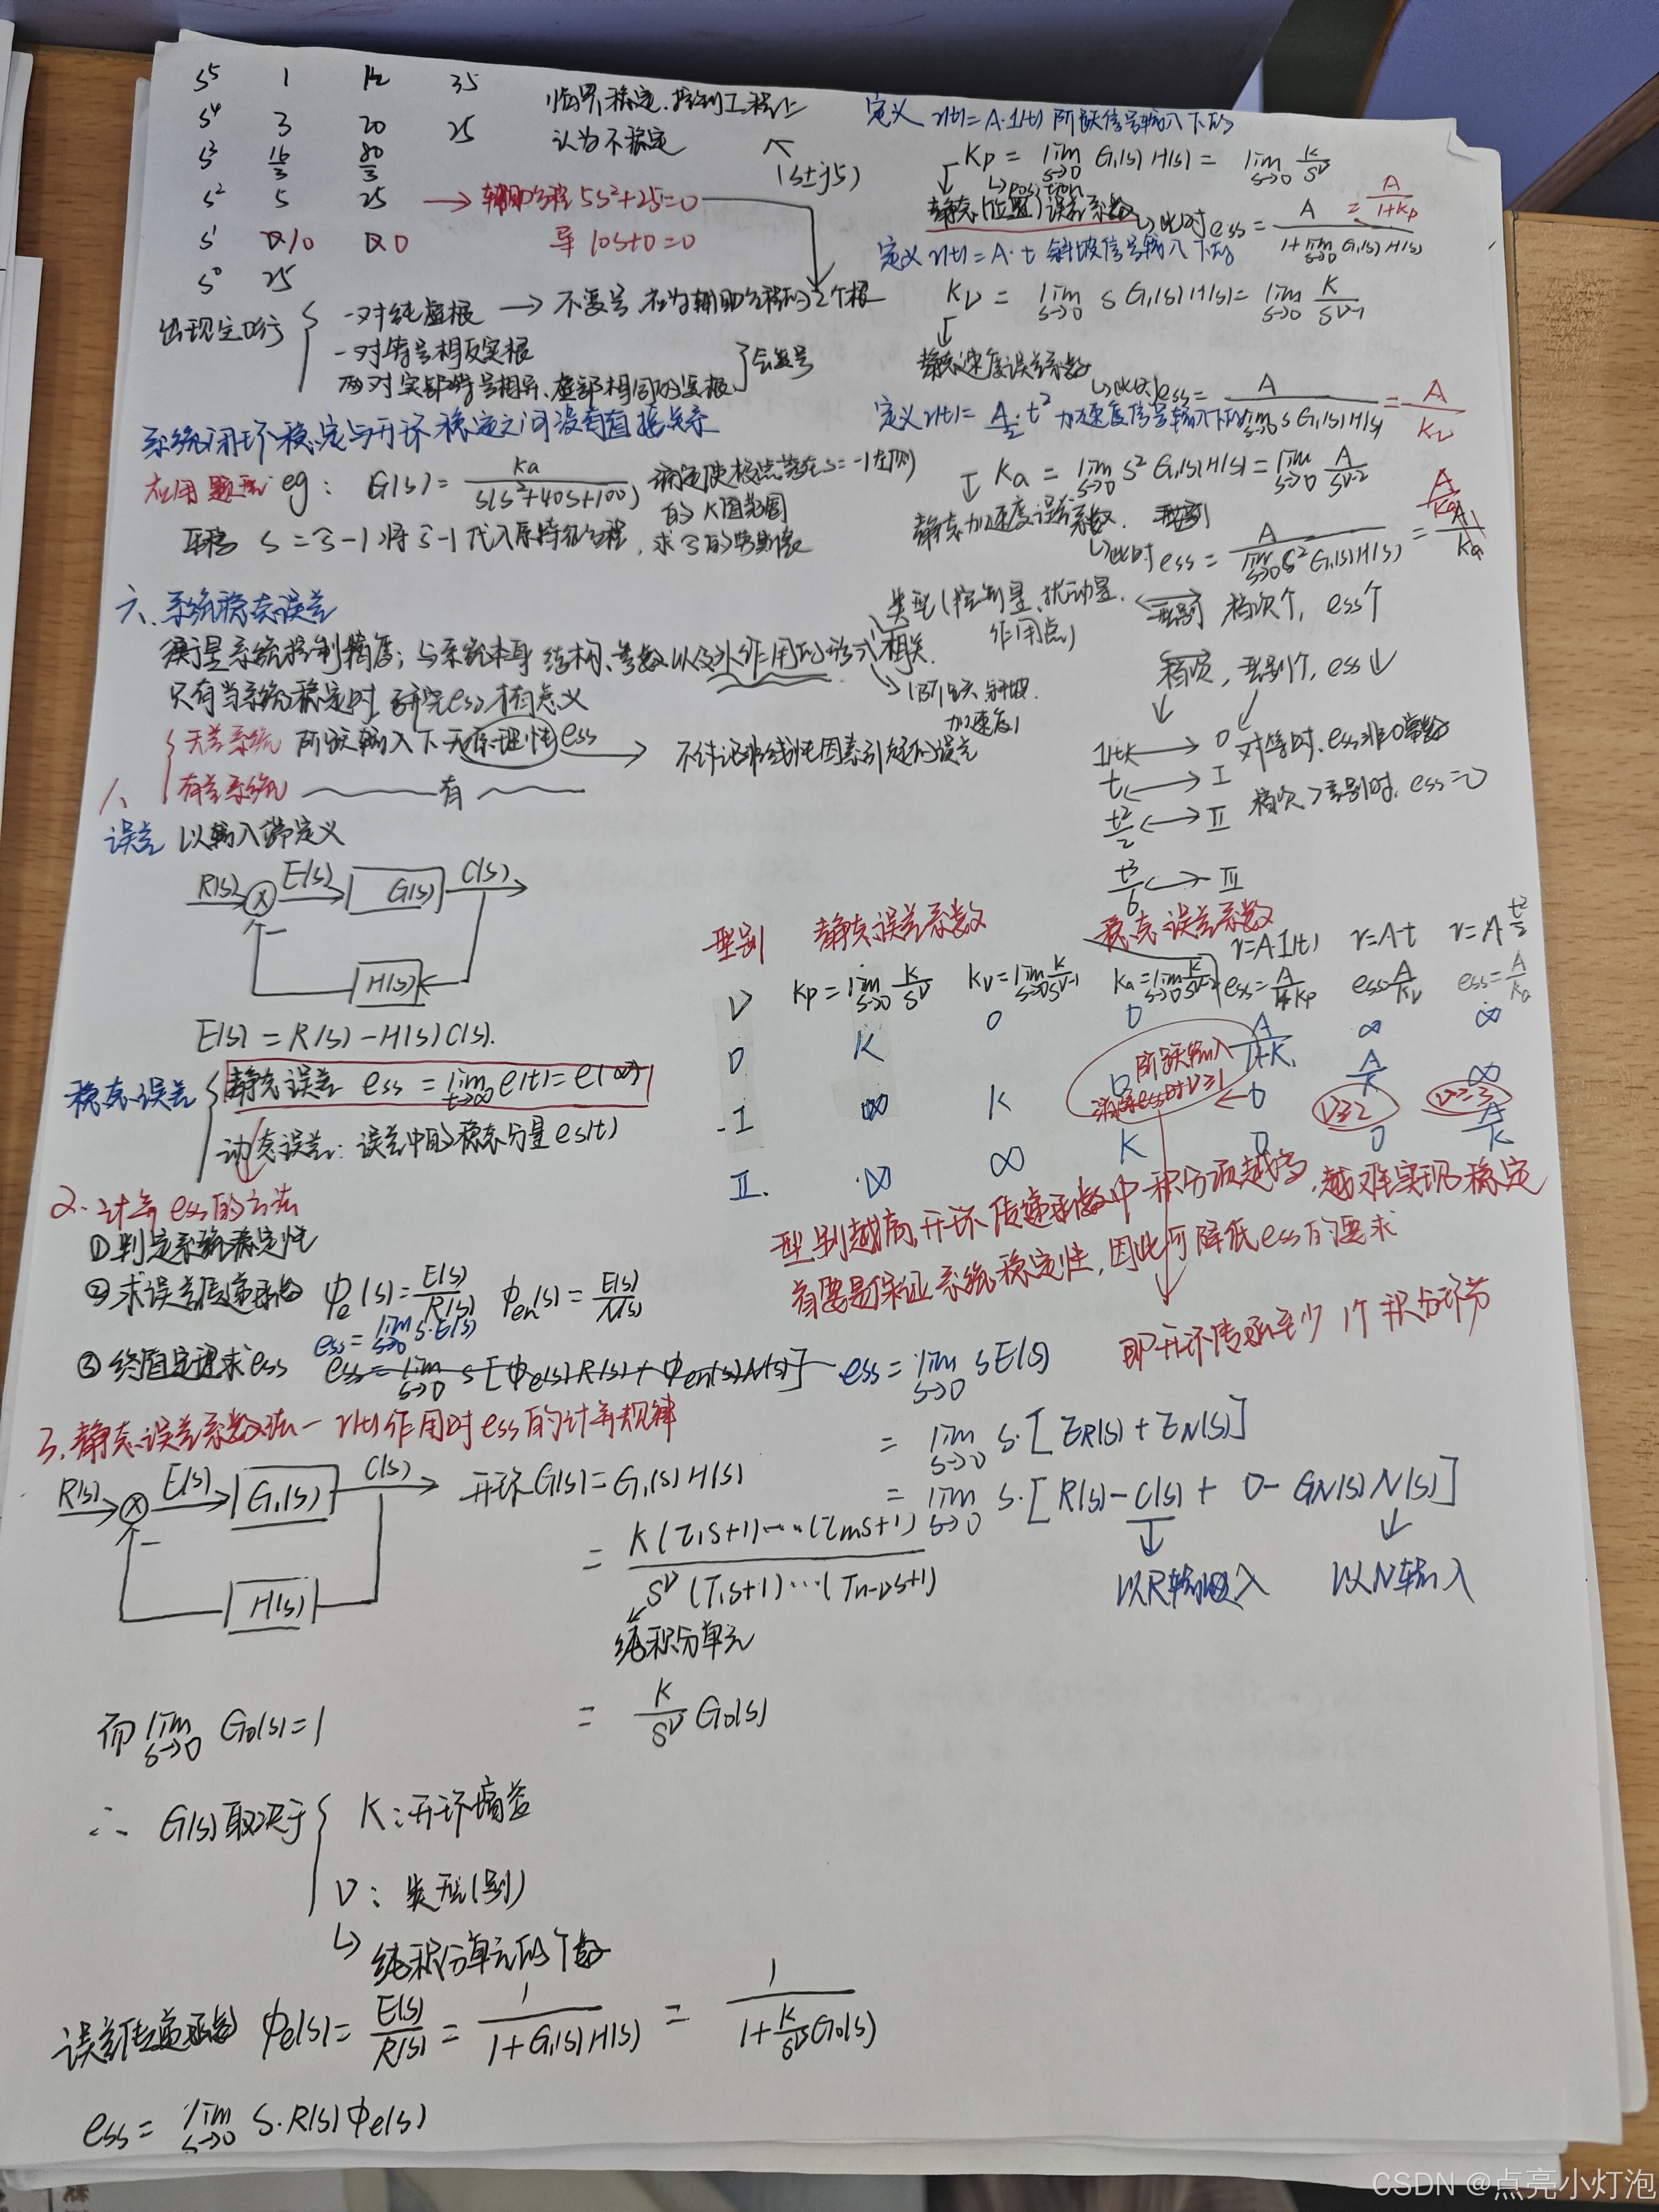 s⁵ 1 12 35
s⁴ 3 20 25
s³ 16/3 80/3
s² 5 25 → 辅助方程 5s²+25=0
s¹ 0 10 0 0 导 10s+0=0
s⁰ 25
临界稳定,控制工程上
认为不稳定
(s±j5)
出现全0行
一对纯虚根 → 不变号 应为辅助方程的2个根
一对符号相反实根
两对实部符号相异、虚部相同的复根 } 会变号
系统闭环稳定与开环稳定之间没有直接关系
应用题型 eg: G(s)= Ka/(s(s²+40s+100)) 确定使极点落在s=-1左侧
的K值范围
平移 s=s-1,将s-1代入原特征方程,求s的劳斯表
六、系统稳态误差
衡量系统控制精度;与系统本身结构、参数以及外作用的形式相关.
类型(控制量、扰动量.
作用点)
(阶跃、斜坡.
加速度)
只有当系统稳定时,研究ess才有意义
1、
无差系统 阶跃输入下无原理性ess → 不计论非线性因素引起的误差
有差系统 —— 有 ——
误差 以输入端定义
R(s) E(s) G(s) C(s)
H(s)
E(s)=R(s)-H(s)C(s).
稳态误差
静态误差 ess=lim t→∞ e(t)=e(∞)
动态误差: 误差中的稳态分量es(t)
2. 计算ess的方法
①判定系统稳定性
②求误差传递函数 Φe(s)=E(s)/R(s) Φen(s)=E(s)/N(s)
ess=lim s→0 s·E(s)
③终值定理求ess ess=lim s→0 s[Φe(s)R(s)+Φen(s)N(s)]
3.静态误差系数法—r(t)作用时ess的计算规律
R(s) E(s) G₁(s) C(s)
H(s)
开环G(s)=G₁(s)H(s)
= K(τ₁s+1)····(τms+1)/(s^ν(T₁s+1)···(Tn-νs+1))
纯积分单元
= K/s^ν G₀(s)
而 lim s→0 G₀(s)=1
∴ G(s)取决于
K:开环增益
ν:类型(别)
↳ 纯积分单元的个数
误差传递函数 Φe(s)=E(s)/R(s)=1/(1+G₁(s)H(s))=1/(1+K/s^ν G₀(s))
ess=lim s→0 s·R(s)Φe(s)
定义 r(t)=A·1(t) 阶跃信号输入下的
Kp=lim s→0 G₁(s)H(s)=lim s→0 K/s^ν
↳position
静态(位置)误差系数
↳此时ess=A/(1+lim s→0 G₁(s)H(s)) =A/(1+Kp)
定义 r(t)=A·t 斜坡信号输入下的
Kν=lim s→0 sG₁(s)H(s)=lim s→0 K/s^(ν-1)
静态速度误差系数
↳此时ess=A/(lim s→0 sG₁(s)H(s))=A/Kν
定义 r(t)=A/2·t² 加速度信号输入下的
Ka=lim s→0 s²G₁(s)H(s)=lim s→0 A/s^(ν-2)
静态加速度误差系数.
↳此时ess=A/(lim s→0 s²G₁(s)H(s))=A/Ka
A/Ka
型别 档次↑,ess↑
档次,型别↑,ess↓
1(t) ←→ 0 对等时,ess非0常数
t ←→ I
t²/2 ←→ II 档次>型别时,ess=0
t³/6 ←→ III
型别 静态误差系数 稳态误差系数
r=A1(t) r=A·t r=A t²/2
ν Kp=lim s→0 K/s^ν Kν=lim s→0 K/s^(ν-1) Ka=lim s→0 K/s^(ν-2) ess=A/(1+Kp) ess=A/Kν ess=A/Ka
0 K 0 0 A/(1+K) ∞ ∞
I ∞ K 0 0 A/K ∞
II. ∞ ∞ K 0 0 A/K
阶跃输入
消除ess时ν≥1
ν≥2 ν≥3
型别越高,开环传递函数中积分项越多,越难实现稳定
首要是保证系统稳定性,因此可降低ess的要求
即开环传函至少1个积分环节
ess=lim s→0 sE(s)
=lim s→0 s·[ER(s)+EN(s)]
=lim s→0 s·[R(s)-C(s)+0-GN(s)N(s)]
以R输入 以N输入
CSDN @点亮小灯泡